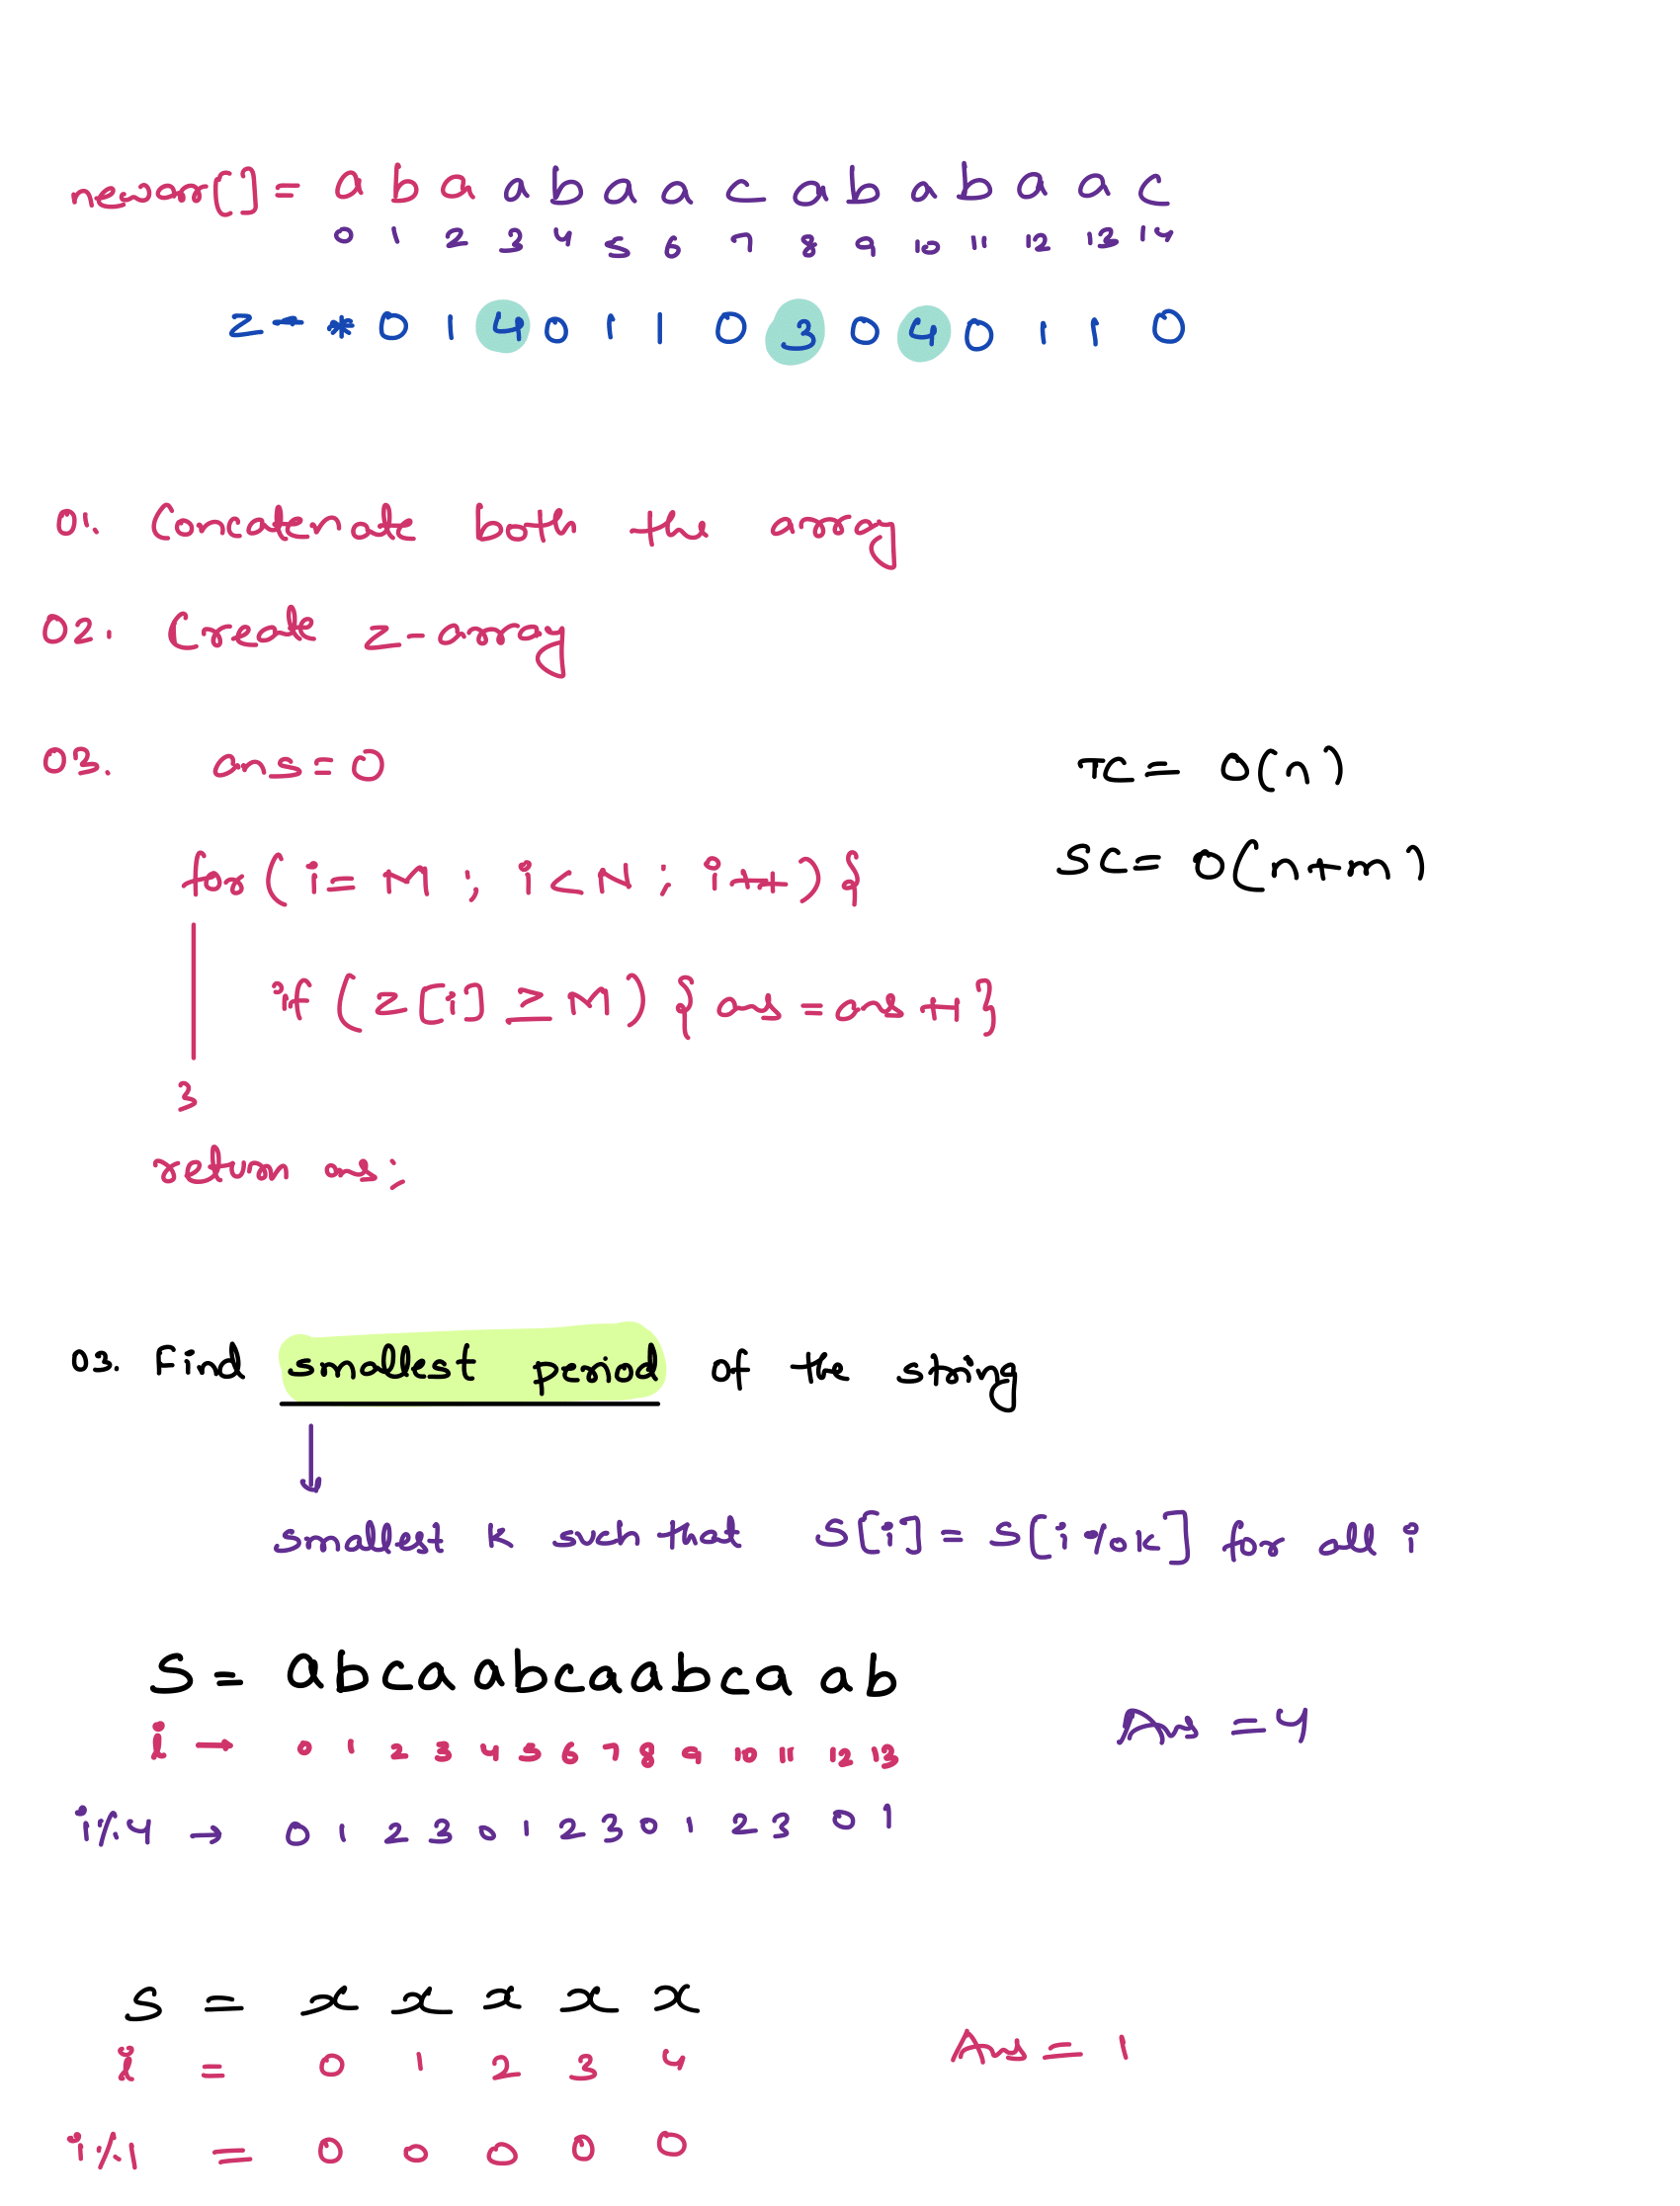 newarr[] = a b a a b a a c a b a b a a c
0 1 2 3 4 5 6 7 8 9 10 11 12 13 14
Z → * 0 1 4 0 1 1 0 3 0 4 0 1 1 0
01. Concatenate both the array
02. Create Z-array
03. ans = 0
TC = O(n)
for ( i = M ; i < N ; i++ ) {
SC = O(n+m)
if ( Z[i] ≥ M ) { ans = ans + 1 }
}
return ans;
03. Find smallest period of the string
smallest k such that S[i] = S[i % k] for all i
S = abca abcaabca ab
i → 0 1 2 3 4 5 6 7 8 9 10 11 12 13
Ans = 4
i%4 → 0 1 2 3 0 1 2 3 0 1 2 3 0 1
S = x x x x x
i = 0 1 2 3 4
Ans = 1
i%1 = 0 0 0 0 0